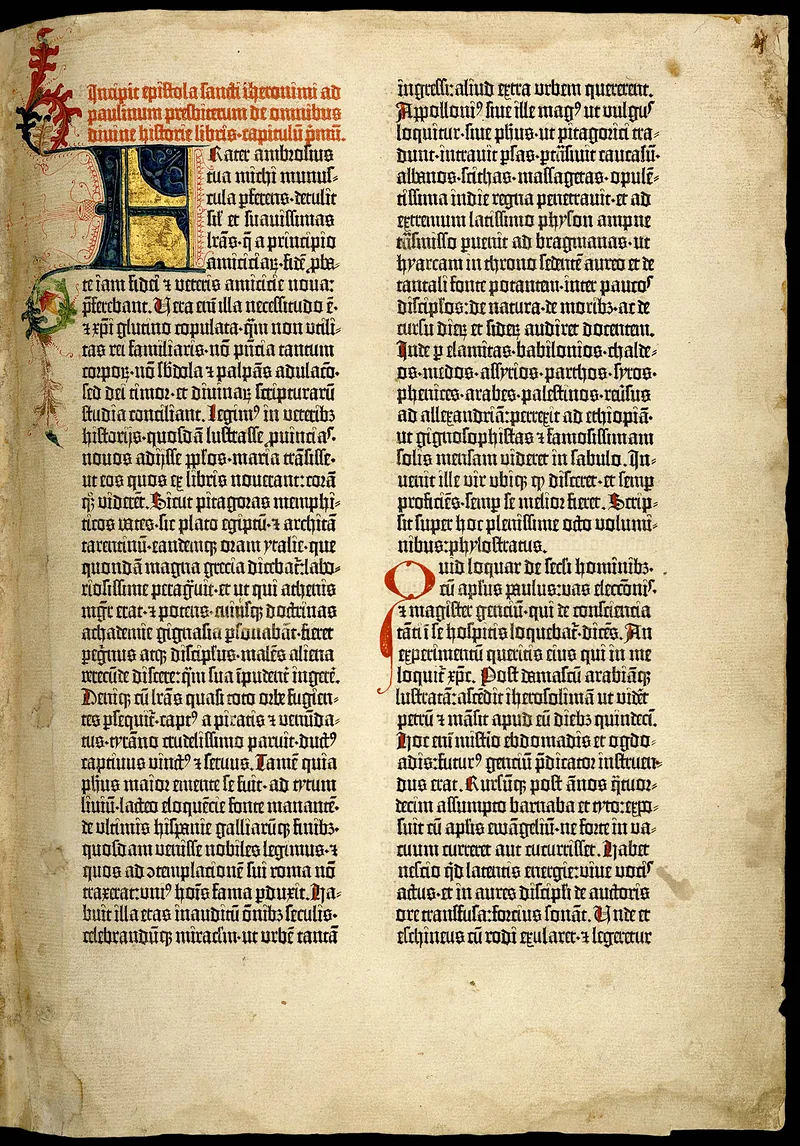 Incipit epistola sancti iheronimi ad
paulinum presbiterum de omnibus
divine historie libris·capitulū p̄mū.
FRater ambrosius
tua michi munus-
cula ꝑferens·detulit
sil̄ et suavissimas
lr̄as·q̄ a principio
amiciciaꝝ·fidē ꝓba-
te iam fidei ⁊ veteris amicicie noua:
p̄ferebant. Vera em̄ illa necessitudo ē·
⁊ xp̄i glutino copulata·qm̄ non vtili-
tas rei familiaris·nō pn̄cia tantum
corpoꝝ·nō sb̄dola ⁊ palpās adulaco·
sed dei timor·et diuinaꝝ scripturarū
studia conciliant. Legimꝰ in veteribꝫ
historijs·quosdā lustrasse ꝓuincias·
nouos adijsse pp̄los·maria trāsisse·
ut eos quos ex libris nouerant: corā
qꝫ viderēt. Sicut pitagoras memphi-
ticos vates·sic plato egiptū·⁊ architā
tarentinū·eandemqꝫ oram ytalie·que
quondā magna grecia dicebat̄: labo-
riosissime peragͣuit·et ut qui athenis
mgr̄ erat·⁊ potens·cuiusqꝫ doctrinas
achademie gignasia ꝑsonabāt·fieret
peg̓nus atqꝫ discipl̄us·malēs aliena
verecūde discere: qm̄ sua īpudent̄ ingerē.
Denique cū lr̄as quasi toto orbe fugien-
tes ꝑsequit̄·captꝰ a piratis ⁊ venūda-
tus·tyrāno crudelissimo paruit·ductꝰ
captiuus vinctꝰ ⁊ seruus. Tamē quia
phūs maior emente se fuit·ad tytum
liuiū·lacteo eloquēcie fonte manantē·
de vltimis hispanie galliarūqꝫ finibꝫ·
quosdam venisse nobiles legimus·⁊
quos ad ꝯtemplacionē sui roma nō
traxerat: vniꝰ hoīs fama ꝑduxit. Ha-
buit illa etas inauditū om̄ibꝫ seculis·
celebrandūqꝫ miracl̄m·ut vrbē tantā
ingressi: aliud extra vrbem quererent.
Appolloniꝰ siue ille magꝰ ut vulgus
loquitur·siue ph̄us·ut pitagorici tra-
dunt·intrauit ꝑsas·ꝑtrāsiuit caucasū·
albanos·scithas·massagetas·opulē-
tissima indie regna penetrauit·et ad
extremum latissimo physon ampne
trāsmisso ꝑuenit ad bragmanas·ut
hyarcam in throno sedentē aureo et de
tantali fonte potantem·inter paucos
discipl̄os: de natura·de moribꝫ·ac de
cursu dieꝝ et sideꝝ audiret docentem.
Inde ꝑ elamitas·babilonios·chalde-
os·medos·assyrios·parthos·syros·
phenices·arabes·palestinos·reūsus
ad allexandriā: perrexit ad ethiopiā·
ut gignosophistas ⁊ famosissimam
solis mensam videret in sabulo. In-
uenit ille vir vbiqꝫ qd̄ disceret·et semꝑ
proficiēs·semꝑ se melior fieret. Scrip-
sit super hoc plenissime octo volumi-
nibus: phylostratus.
Quid loquar de secli hominibꝫ·
cū apl̄us paulus: vas eleccōnis·
⁊ magister genciū·qui de consciencia
tāti ī se hospitis loquebat̄·dicēs. An
experimentū queritis eius qui in me
loquit̄ xpc̄. Post damascū arabiāqꝫ
lustratā: ascēdit iherosolimā ut vidēt
petrū ⁊ māsit apud eū diebꝫ quindeci.
Hoc em̄ mistio ebdomadis et ogdo-
adis: futurꝰ genciū p̄dicator instruen-
dus erat. Rursūqꝫ post ānos q̄tuor-
decim assumpto barnaba et tyto: expo-
suit cū apl̄is ewāgeliū·ne forte in va-
cuum curreret aut cucurrisset. Habet
nescio qd̄ latentis energie: viue vocis
actus·et in aures discipl̄i de auctoris
ore transfusa: forcius sonāt. Vnde et
eschineus cū rodi exularet·⁊ legeretur